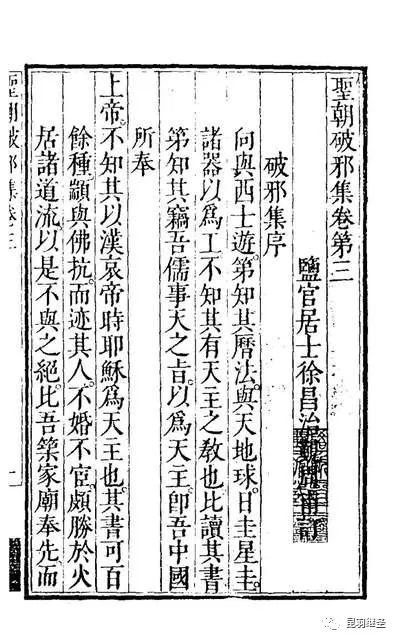 聖朝破邪集卷第三
鹽官居士徐昌治訂
破邪集序
向與西士遊。第知其曆法。與天地球。日圭星圭。
諸器以爲工不知其有天主之敎也比讀其書
第知其竊吾儒事天之旨。以爲天主卽吾中國
所奉
上帝。不知其以漢哀帝時耶穌爲天主也。其書可百
餘種。顓與佛抗。而迹其人。不婚不宦。頗勝於火
居諸道流。以是不與之絕。比吾築家廟奉先而
聖朝破邪集卷三
一
昆羽继圣